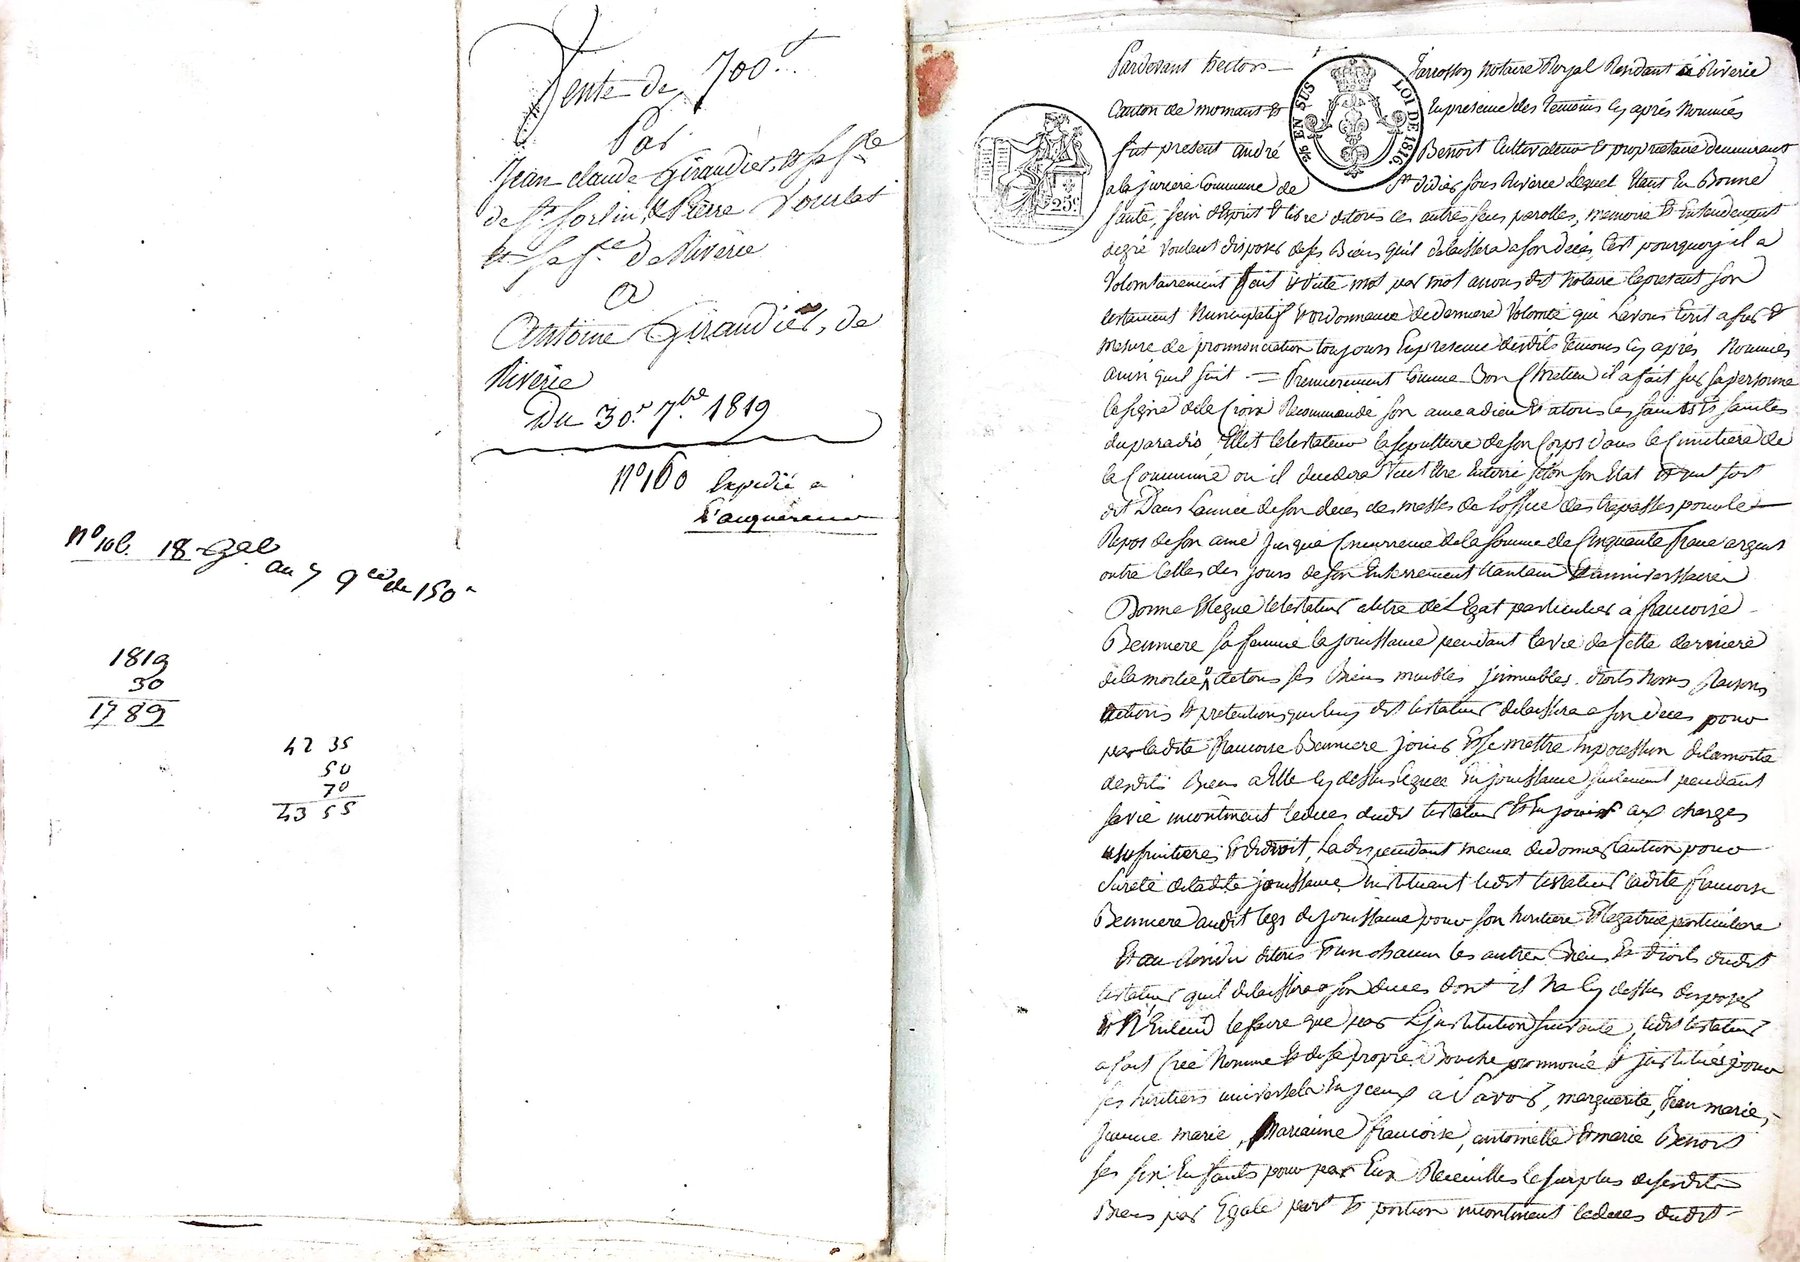 Vente de 700 f.
Par
Jean claude Giraudier, & sa fe
de St. Sorlin, & Pierre
& sa fe. de Riverie
A
Antoine Giraudier, de
Riverie
Du 30e. 7bre 1819
n° 160 Expedié a
L'acquereur
n° 106. 18
au 7 de 150
1819
30
1789
42 35
50
70
43 55
2/6 EN SUS
LOI DE 1816.
25c
Pardevant hector Jarrosson notaire Royal Residant a Riverie
Canton de mornant & En presence des temoins cy après nommés
fut present andré Benoit Cultivateur & proprietaire demeurant
a la juriere Commune de St. didier sous Riverie Lequel Etant En Bonne
santé, sein d'esprit & libre de tous ces autres sens parolles, memoire & Entendement
degré voulant disposer de ses Biens qu'il delaissera a son deces, C'est pourquoy il a
Volontairement fait & dicté mot par mot a nous dit notaire le present son
testament Nuncupatif & ordonnance de derniere Volonté que L'avons Ecrit a fur &
mesure de prononciation toujours En presence desdits temoins cy après Nommés
ainsi quil suit = Premierement Comme Bon Chretien il a fait sur sa personne
le signe de la Croix Recommandé son ame a dieu & a tous les saints & saintes
du paradis, Ellit le testateur la sepulture de son Corps dans le Cimetiere de
la Commune ou il decedera veut etre Enterré selon son Etat & veut soit
dit Dans Lannée de son deces des messes de L'office des trepassés pour le
Repos de son ame jusqua Concurrence de la somme de Cinquante franc argent
outre Celles des jours de son Enterrement quarantain & anniverssaire
Donne & legue le testateur a titre de Legat particulier à francoise
Benniere sa femme la jouissance pendant la vie de Cette derniere
de la moitié de tous ses Biens meubles, immeubles, droits Noms Raisons
actions & pretentions que luy dit testateur delaissera a son deces pour
par ladite francoise Benniere jouir & se mettre En possession de la moitié
desdits Biens a Elle cy dessus leguée En jouissance seulement pendant
sa vie incontinent le deces dudit testateur & En jouir aux charges
usufruitieres & de droit, La dispensant meme de donner Caution pour
sureté de ladite jouissance, instituant ledit testateur ladite francoise
Benniere audit legs de jouissance pour son heritiere & legatrice particuliere
Et au Residu de tous & un chacun les autres Biens & droits dudit
testateur qu'il delaissera a son deces dont il Na cy dessus disposer
& N'Entend le faire que par L'institution suivante, ledit testateur
a fait Créé Nommé & de sa propre Bouche prononcé & institués pour
ses heritiers universels En iceux a Savoir, marguerite, Jean marie,
Jeanne marie, Marianne francoise, antoinette & marie Benoit
ses six Enfants pour par Eux Receuillir le surplus de sesdits
Biens par Egale part & portion incontinent le deces dudit